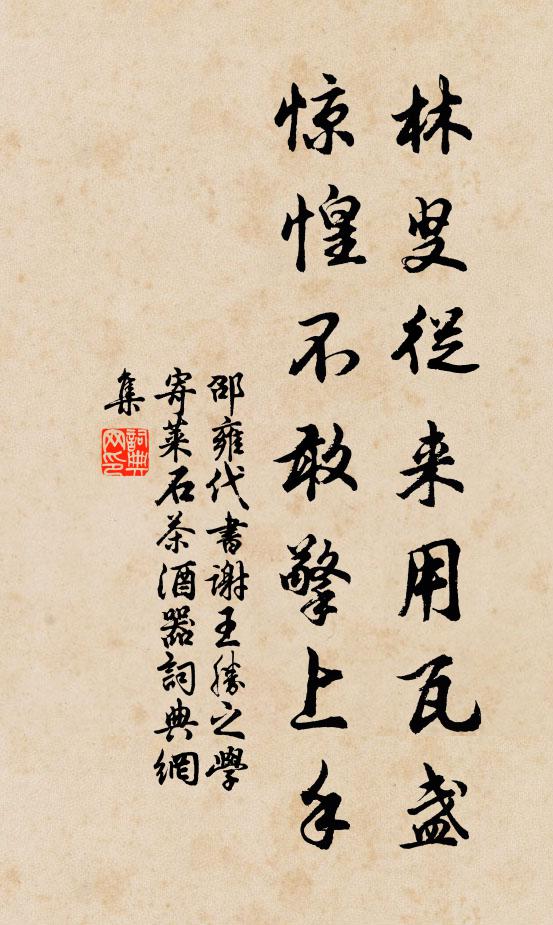 林叟從来用瓦盏
惊惶不敢擎上手
邵雍代書謝王勝之學
寄萊石茶酒器詞典網
集
詞典
网印